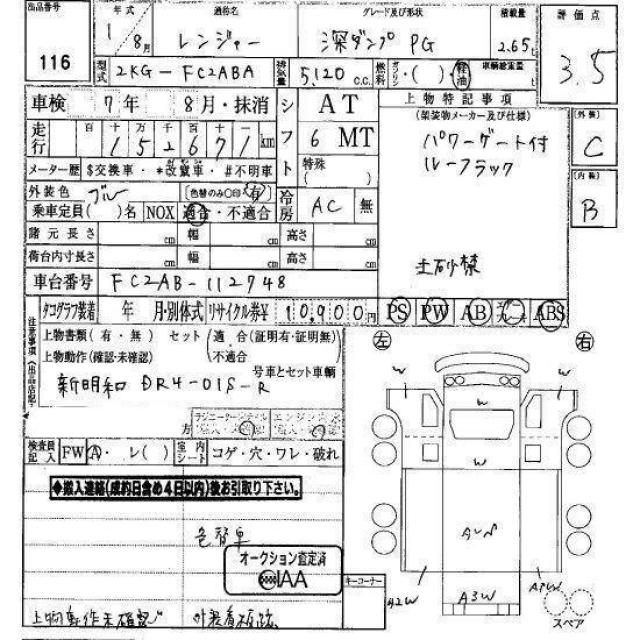 出品番号 年式 通称名 グレード及び形状 積載量 評価点
116 1 / 8月 レンジャー 深ダンプ PG 2.65t 3.5
型式 2KG-FC2ABA 排気量 5,120 c.c. 燃料 ガソリン・( )・軽油 車輌総重量 t
車検 7年 8月・抹消 シフト AT 上物特記事項 (外装)
(架装物メーカー及び仕様) C
走行 百 十 万 千 百 十 一 6 MT パワーゲート付
1 5 2 6 7 1 km ルーフラック
メーター歴 $交換車・*改竄車・#不明車 特殊( ) (内装)
外装色 ブルー (色替のみ○印 有) 冷房 AC 無 B
乗車定員( )名 NOX 適合・不適合
諸元長さ cm 幅 cm 高さ cm
荷台内寸長さ cm 幅 cm 高さ cm 土砂禁
車台番号 FC2AB-112748
タコグラフ装着 年 月・別体式 リサイクル券¥ 10,900円 PS PW AB ABS
注意事項 上物書類(有・無) セット(適合(証明有・証明無) 左 右
上物動作(確認・未確認) 不適合
号車とセット車輌
新明和 DR4-01S-R
方
検査員記入 FW A・レ( ) 室内シート コゲ・穴・ワレ・破れ
◆搬入連絡(成約日含め4日以内)後お引取り下さい。
色替車
オークション査定済
IAA
キーコーナー
上物動作未確認
W W W W
A2W A3W A1W
スペア